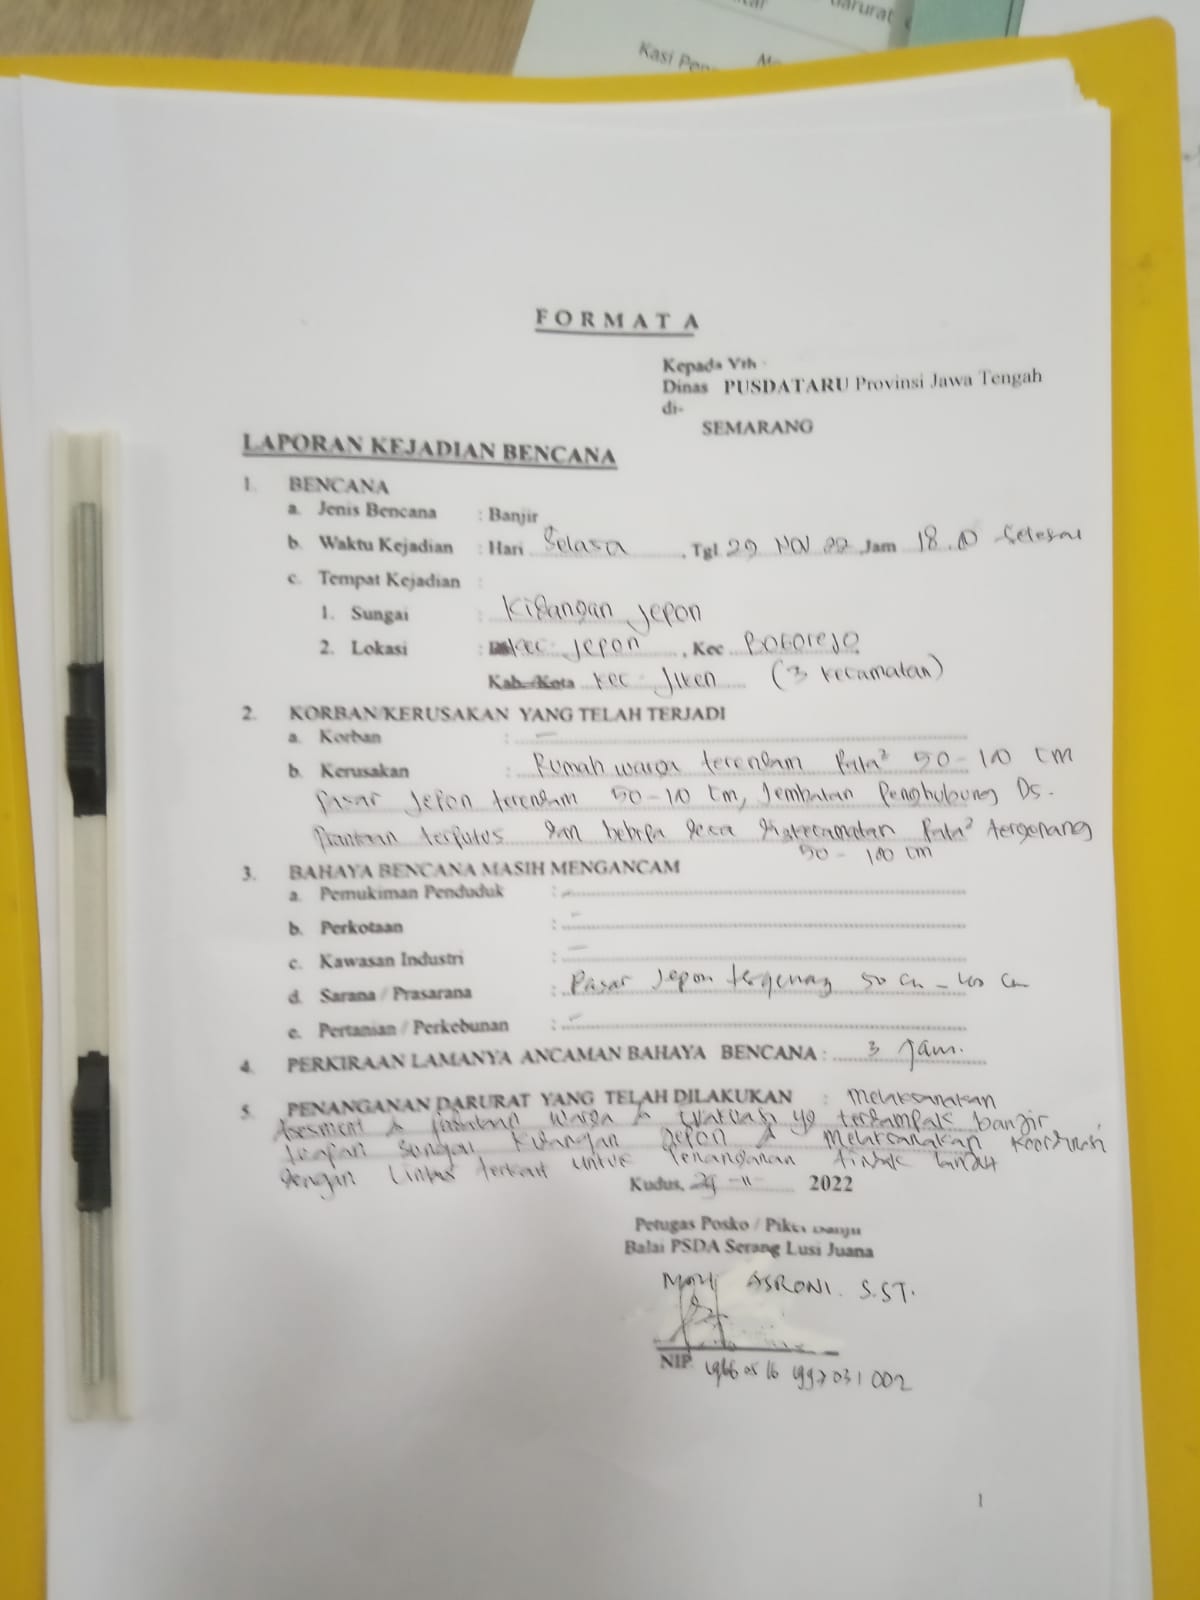 darurat
Kasi Pen
FORMAT A
Kepada Yth
Dinas PUSDATARU Provinsi Jawa Tengah
di-
SEMARANG
LAPORAN KEJADIAN BENCANA
1. BENCANA
a. Jenis Bencana : Banjir
b. Waktu Kejadian : Hari Selasa, Tgl 29 Nov 22 Jam 18.10 Selesai
c. Tempat Kejadian :
1. Sungai : Kidangan Jepon
2. Lokasi : Kec. Jepon, Kec Bogorejo
Kab./Kota Kec. Jiken (3 kecamatan)
2. KORBAN/KERUSAKAN YANG TELAH TERJADI
a. Korban : -
b. Kerusakan : Rumah warga terendam Rata² 50-100 cm
Pasar Jepon terendam 50-100 cm, Jembatan Penghubung Ds.
terputus dan desa kecamatan Rata² tergenang
50 - 100 cm
3. BAHAYA BENCANA MASIH MENGANCAM
a. Pemukiman Penduduk : -
b. Perkotaan : -
c. Kawasan Industri : -
d. Sarana / Prasarana : Pasar Jepon tergenang 50 cm - 100 cm
e. Pertanian / Perkebunan : -
4. PERKIRAAN LAMANYA ANCAMAN BAHAYA BENCANA : 3 Jam.
5. PENANGANAN DARURAT YANG TELAH DILAKUKAN : Melaksanakan
Asesment & warga & evakuasi yg terdampak banjir
Sungai Kidangan Jepon & melaksanakan Koordinasi
dengan Lintas terkait untuk Penanganan tindak lanjut
Kudus, 29 - 11 - 2022
Petugas Posko / Piket Banjir
Balai PSDA Serang Lusi Juana
ASRONI. S.ST.
NIP. 19660516 199703 1 002
1